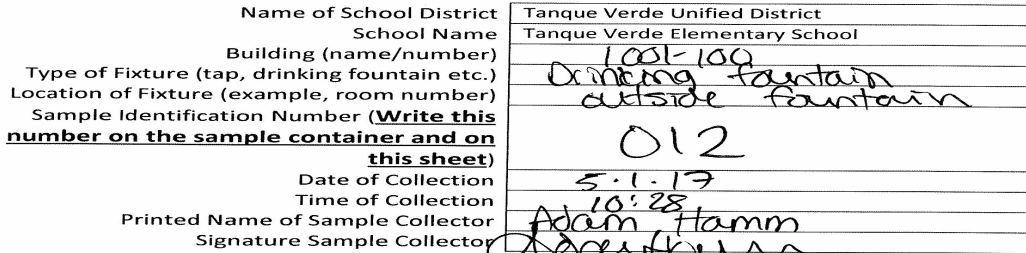 Name of School District Tanque Verde Unified District
School Name Tanque Verde Elementary School
Building (name/number) 1001-100
Type of Fixture (tap, drinking fountain etc.) Drinking fountain
Location of Fixture (example, room number) outside fountain
Sample Identification Number (Write this
number on the sample container and on
this sheet) 012
Date of Collection 5.1.17
Time of Collection 10:28
Printed Name of Sample Collector Adam Hamm
Signature Sample Collector